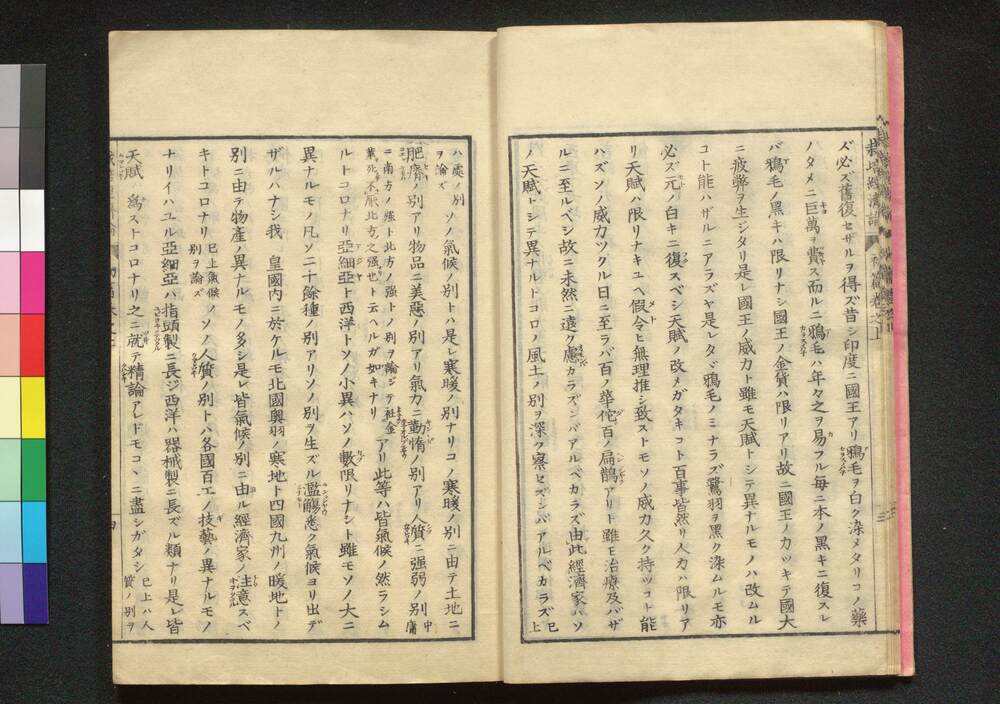 バ必ズ舊復セザルヲ得ズ昔シ印度ニ國王アリ鴉毛ヲ白ク染メタリコノ藥
ノタメニ巨萬ヲ費ス而ルニ鴉毛ハ年々之ヲ易フル毎ニ本ノ黑キニ復スレ
バ鴉毛ノ黑キハ限リナシ國王ノ金貨ハ限リアリ故ニ國王ノ力ツキテ國大
ニ疲弊ヲ生ジタリ是レ國王ノ威力ト雖モ天賦トシテ異ナルモノハ改ムル
コト能ハザルニアラズヤ是レタヾ鴉毛ノミナラズ鷺羽ヲ黑ク染ムルモ亦
必ズ元ノ白キニ復スベシ天賦ノ改メガタキコト百事皆然リ人力ハ限リア
リ天賦ハ限リナキユヘ假令ヒ無理推シ致ストモソノ威力久ク持ツコト能
ハズソノ威力ツクル日ニ至ラバ百ノ華佗百ノ扁鵲アリト雖モ治療及バザ
ルニ至ルベシ故ニ未然ニ遠ク慮カラズンバアルベカラズ由此經濟家ハソ
ノ天賦トシテ異ナルトコロノ風土ノ別ヲ深ク察セズンバアルベカラズ 已上
ハ風ノ別ヲ論ズ ソノ氣候ノ別トハ是レ寒暖ノ別ナリコノ寒暖ノ別ニ由テ土地ニ
肥瘠ノ別アリ物品ニ美惡ノ別アリ氣力ニ勤惰ノ別アリ質ニ强弱ノ別 中庸
ニ南方ノ强ト北方ノ强トノ別ヲ論ジテ衽金革死不厭北方之强也ト云ヘルガ如キナリ アリ此等ハ皆氣候ノ然ラシム
ルトコロナリ亞細亞ト西洋トソノ小異ハソノ數限リナシト雖モソノ大ニ
異ナルモノ凡ソ二十餘種ノ別アリソノ別ヲ生ズル濫觴悉ク氣候ヨリ出デ
ザルハナシ我 皇國内ニ於ケルモ北國奥羽ノ寒地ト四國九州ノ暖地トノ
別ニ由テ物産ノ異ナルモノ多シ是レ皆氣候ノ別ニ由ル經濟家ノ注意スベ
キトコロナリ 已上氣候ノ別ヲ論ズ ソノ人質ノ別トハ各國百工ノ技藝ノ異ナルモノ
ナリイハユル亞細亞ハ指頭製ニ長ジ西洋ハ器械製ニ長ズル類ナリ是レ皆
天賦ノ爲ストコロナリ之ニ就テ精論アレドモコヽニ盡シガタシ 已上ハ人質ノ別ヲ